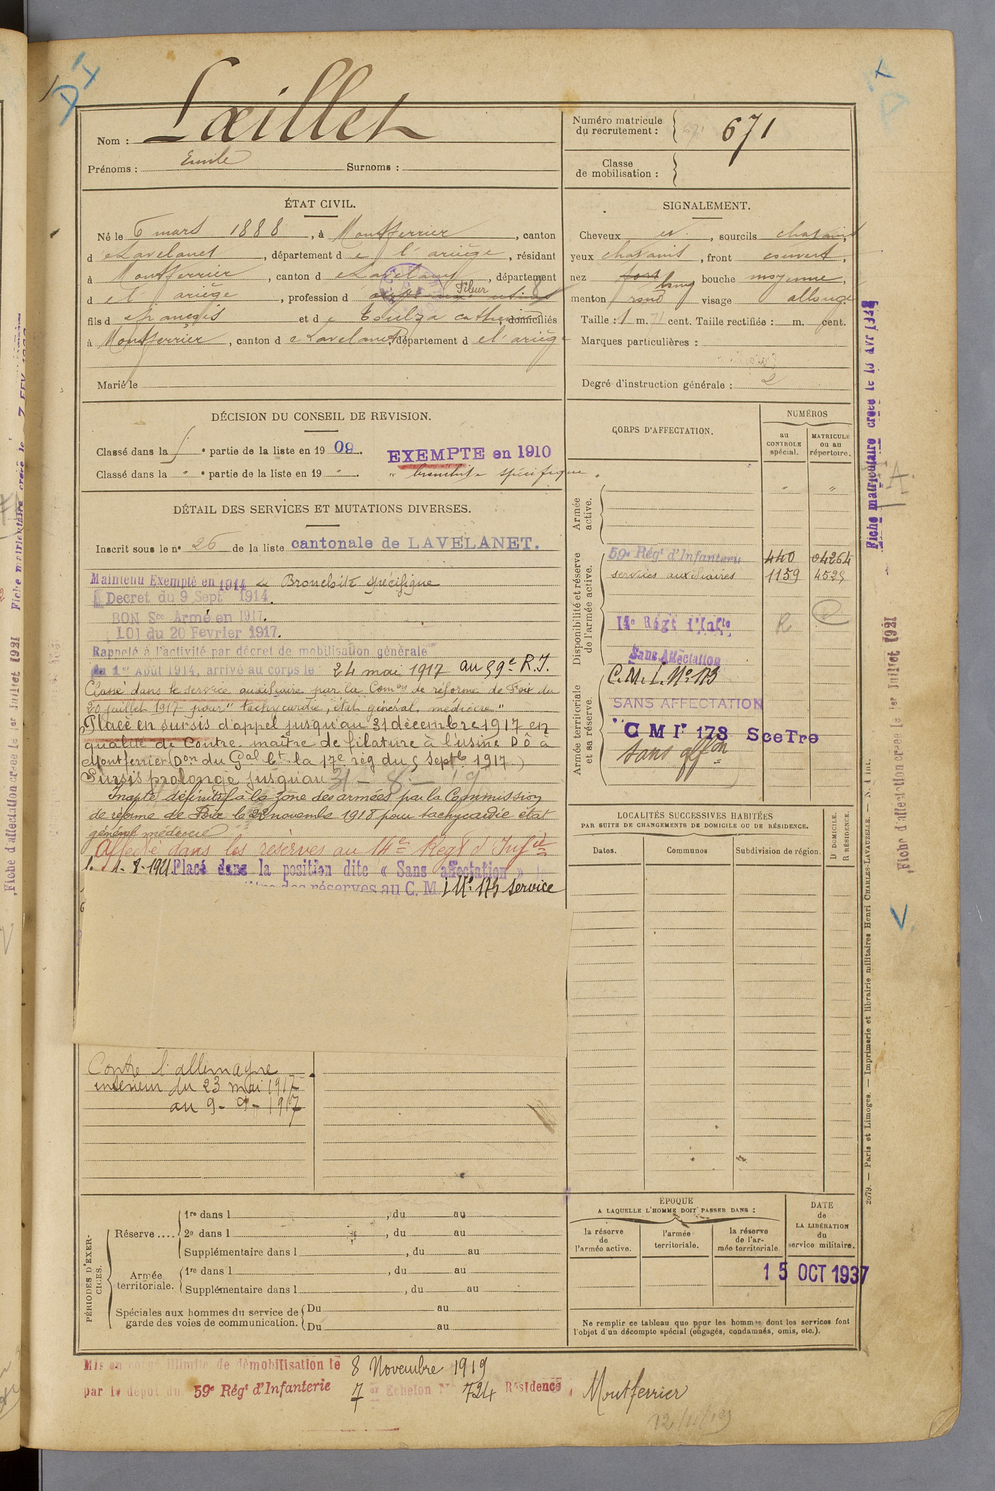 Nom : Lœillet
Prénoms : Emile Surnoms :
Numéro matricule du recrutement : 671
Classe de mobilisation :
ÉTAT CIVIL.
Né le 6 mars 1888, à Montferrier, canton
de Lavelanet, département de l'ariège, résidant
à Montferrier, canton de Lavelanet, département
de l'ariège, profession d Fileur
fils de François et de Coulza catherine, domiciliés
à Montferrier, canton de Lavelanet, département de l'ariège
Marié le
SIGNALEMENT.
Cheveux , sourcils chatains
yeux chatains, front couvert,
nez long bouche moyenne,
menton rond visage allongé
Taille : 1 m. 71 cent. Taille rectifiée : m. cent.
Marques particulières :
Degré d'instruction générale : 2
DÉCISION DU CONSEIL DE REVISION.
Classé dans la partie de la liste en 1909. EXEMPTÉ en 1910
Classé dans la " partie de la liste en 19 " . " bronchite spécifique "
DÉTAIL DES SERVICES ET MUTATIONS DIVERSES.
Inscrit sous le n° 26 de la liste cantonale de LAVELANET.
Maintenu Exempté en 1914 Bronchite spécifique
Décret du 9 Sept 1914.
BON Sce Armé en 1917.
LOI du 20 Février 1917.
Rappelé à l'activité par décret de mobilisation générale
du 1er Août 1914, arrivé au corps le 24 mai 1917 au 59e R.I.
Classé dans le service auxiliaire par la Comon de réforme de Foix du
20 juillet 1917 pour "tachycardie, état général, médiocre"
Placé en sursis d'appel jusqu'au 31 décembre 1917 en
qualité de Contre-maître de filature à l'usine Dô à
Montferrier (Don du Gal Ct la 17e rég du 5 Septbe 1917.)
Sursis prolongé jusqu'au 31-8-19
Inapte définitif à la zone des armées par la Commission
de réforme de Foix le 28 novembre 1918 pour tachycardie état
général médiocre
Affecté dans les réserves au 14e Regt d'Infie
1-8-1921 Placé dans la position dite « Sans affectation »
des réserves au C. M. I N° 173 service
Contre l'allemagne
interieur du 23 mai 1917
au 9-9-1917
CORPS D'AFFECTATION.
NUMÉROS
au CONTROLE spécial.
MATRICULE ou au répertoire.
Armée active.
" "
Disponibilité et réserve de l'armée active.
59e Régt d'Infanterie 440 04264
services auxiliaires 1159 4529
14e Régt d'Infie R
Sans Affectation
Armée territoriale et sa réserve.
C.M.I. N° 173
SANS AFFECTATION
"CMI" 173 SceTre
Sans affon
LOCALITÉS SUCCESSIVES HABITÉES
PAR SUITE DE CHANGEMENTS DE DOMICILE OU DE RÉSIDENCE.
Dates. Communes Subdivision de région. D DOMICILE. R RÉSIDENCE.
PÉRIODES D'EXERCICES.
Réserve ....
1re dans l , du au
2e dans l , du au
Supplémentaire dans l , du au
Armée territoriale.
1re dans l , du au
Supplémentaire dans l , du au
Spéciales aux hommes du service de garde des voies de communication.
Du au
Du au
ÉPOQUE
A LAQUELLE L'HOMME DOIT PASSER DANS :
la réserve de l'armée active.
l'armée territoriale.
la réserve de l'armée territoriale.
DATE de LA LIBÉRATION du service militaire.
15 OCT 1937
Ne remplir ce tableau que pour les hommes dont les services font
l'objet d'un décompte spécial (engagés, condamnés, omis, etc.).
Mis en congé illimité de démobilisation le 8 Novembre 1919
par le dépôt du 59e Régt d'Infanterie 7e Echelon N° 724 Résidence, Montferrier
2079. — Paris et Limoges. — Imprimerie et librairie militaires Henri CHARLES-LAVAUZELLE.
Fiche matriculaire créée le 15 Avr 1948
Fiche d'affectation créée le 1er Juillet 1921
Fiche d'affectation créée le 1er Juillet 1921